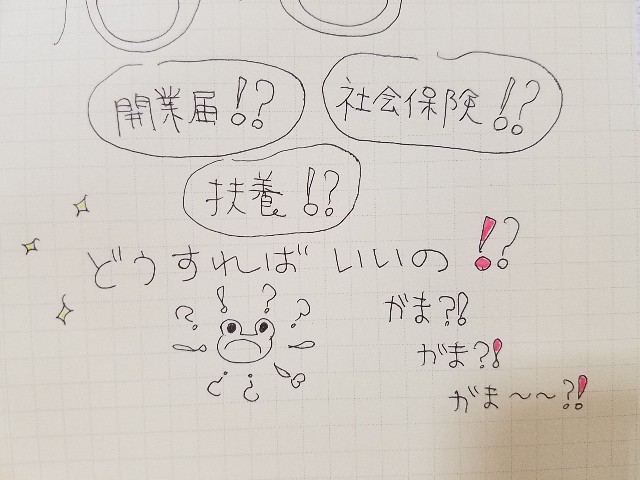 開業届!? 社会保険!?
扶養!?
どうすればいいの!?
がま?!
がま?!
がま～～?!